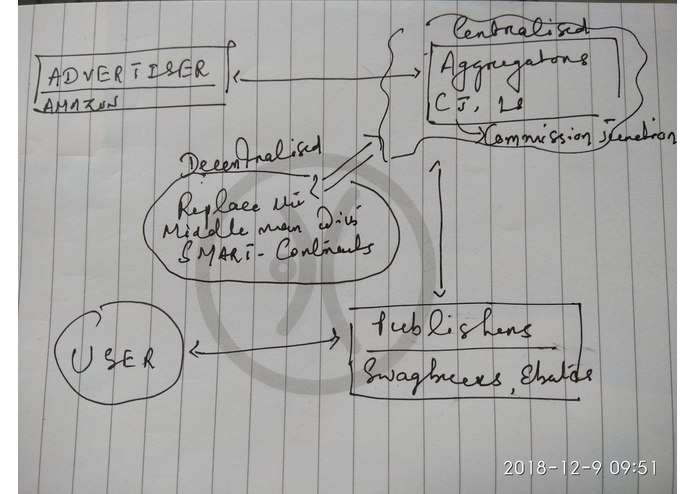 Centralised
ADVERTISER
AMAZON
Aggregators
CJ, LS
Commission Junction
Decentralised
Replace this
Middle man with
SMART-Contracts
USER
Publishers
Swagbucks, Ebates
2018-12-9 09:51